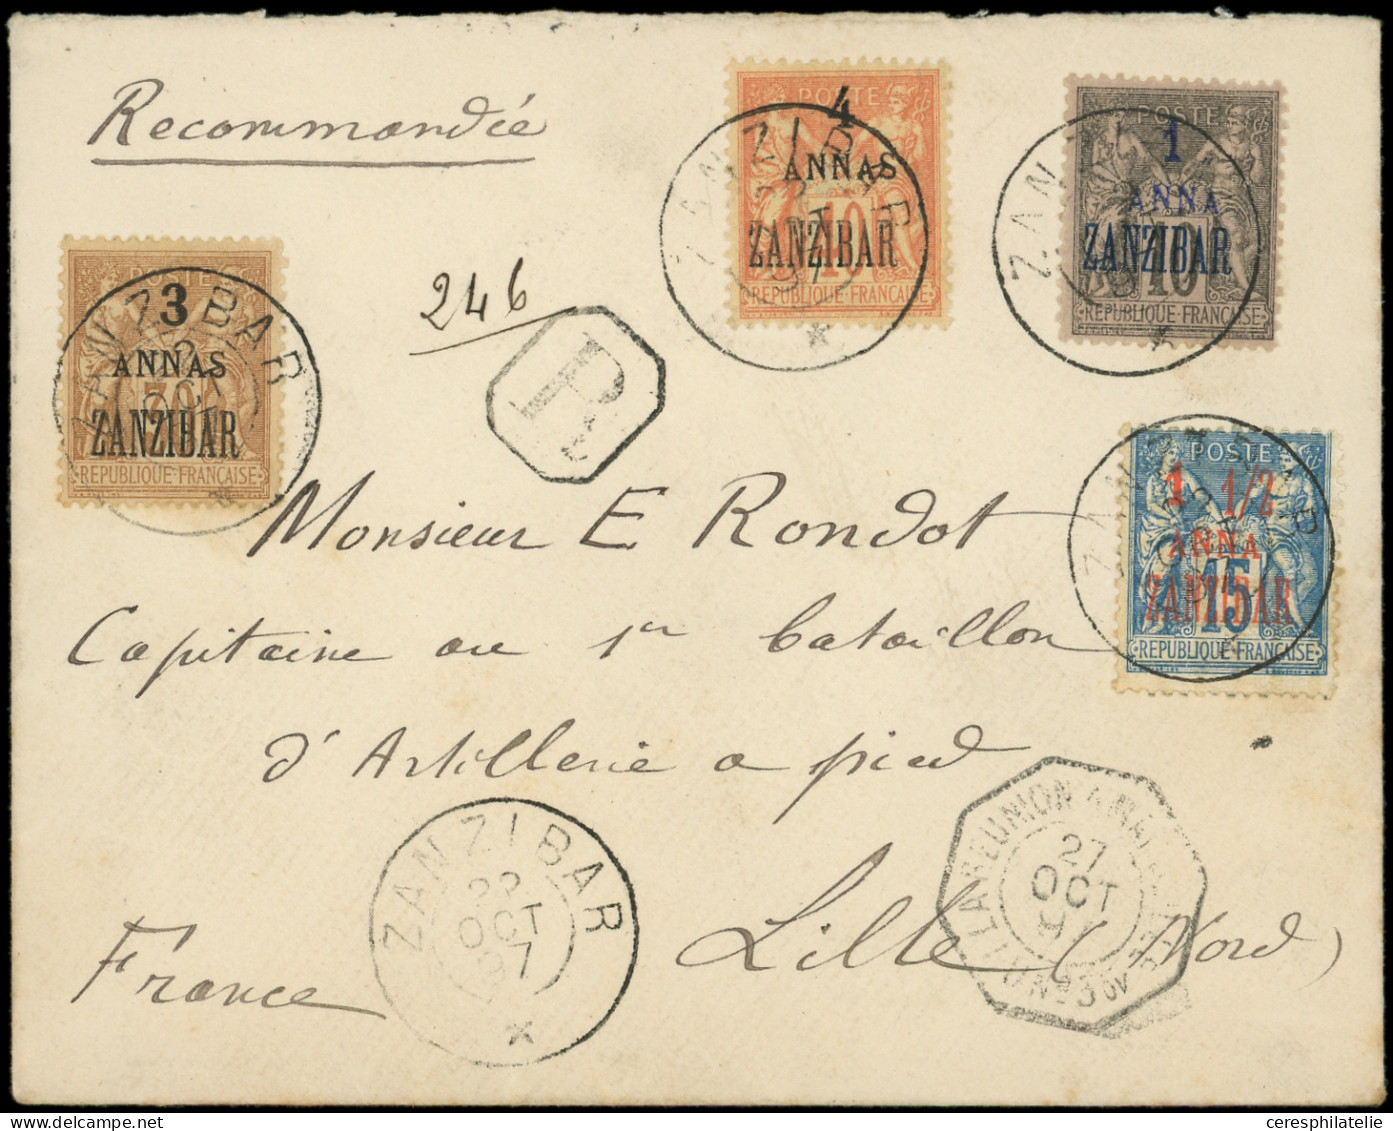 Recommandée
246
R
POSTE
3
ANNAS
ZANZIBAR
REPUBLIQUE FRANÇAISE
ZANZIBAR
OCT
POSTE
4
ANNAS
ZANZIBAR
REPUBLIQUE FRANÇAISE
ZANZIBAR
POSTE
1
ANNA
ZANZIBAR
10
REPUBLIQUE FRANÇAISE
POSTE
1 1/2
ANNA
ZANZIBAR
15
REPUBLIQUE FRANÇAISE
Monsieur E Rondot
Capitaine au 1er bataillon
d'Artillerie a pied
Lille (Nord)
France
ZANZIBAR
22
OCT
97
LA REUNION A MARSEILLE
27
OCT
97
L.V N°3
ceresphilatelie